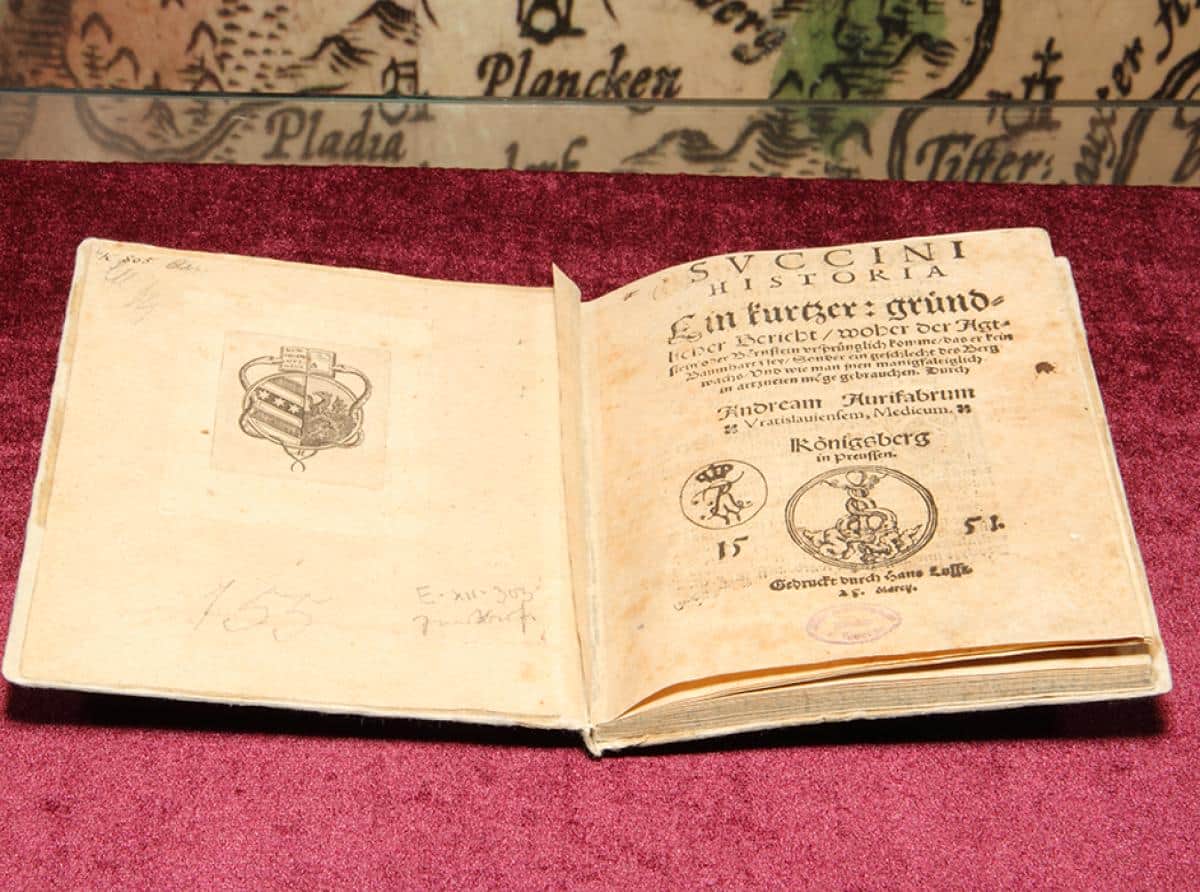 Plancken
berg
Pladia
Tiffer:
E-XII-303
155
SVCCINI
HISTORIA
Ein kurtzer: gründ-
licher Bericht / woher der Agt-
stein oder Börnstein vrsprünglich komme / das er kein
Baumhartz sey / Sonder ein geschlecht des Berg
wachs / Vnd wie man jnen manigfaltiglich
in artzneien möge gebrauchen. Durch
Andream Aurifabrum
Vratislauiensem, Medicum.
Königsberg
in Preussen.
15 51.
Gedruckt durch Hans Lufft